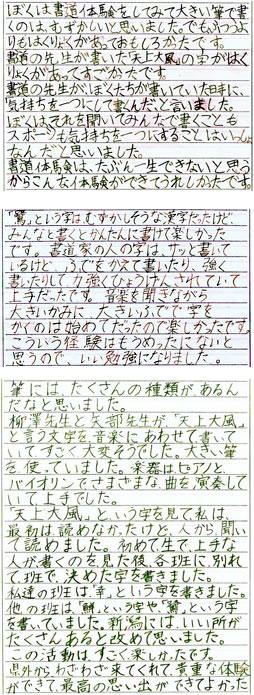 ぼくは書道体験をしてみて大きい筆で書
くのは、むずかしいと思いました。でもふつうよ
りもはくりょくがあっておもしろかったです。
書道の先生が書いた「天上大風」の字がはく
りょくがあってすごかったです。
書道の先生がいぼくたちが書いていた時に、
気持ちを一つにして書くんだと言いました。
ぼくはそれを聞いてみんなで書くことも
スポーツも気持ちを一つにすることはいっしょ
なんだと思いました。
書道体験は、たぶん一生できないと思う
からこんな体験ができてうれしかったです。
「鷺」という字はむずかしそうな漢字だったけど
みんなと書くとかんたんに書けて楽しかった
です。書道家の人の字は、サッと書いて
いるけど、ふでをかえて書いたり、強く
書いたりして力強くひょうげんされていて
上手だったです。音楽を聞きながら
大きいかみに大きいふでで字を
かくのは始めてだったので楽しかったです。
こういう経験はもうめったにないと
思うので、いい勉強になりました。
筆には、たくさんの種類があるん
だなと思いました。
柳澤先生と矢部先生が、「天上大風」
と言う文字を、音楽にあわせて書いて
いて、すごく大変そうでした。大きい筆
を使っていました。楽器は、ピアノと、
バイオリンでさまざまな、曲を演奏して
いて上手でした。
「天上大風」、という字を見て私は、
最初は、読めなかったけど、人から、聞い
て読めました。初めて生で、上手な
人が、書くのを見た後、各班に、別れ
て、班で、決めた字を書きました。
私達の班は、「幸」、という字を書きました。
他の班は、「鮮」、という字や、「鷺」、という字
を書いていました。新潟には、いい所が
たくさんあると改めて思いました。
この活動は、すごく楽しかったです。
県外からわざわざ来てくれて、貴重な体験
ができて、最高の思い出ができてよかった